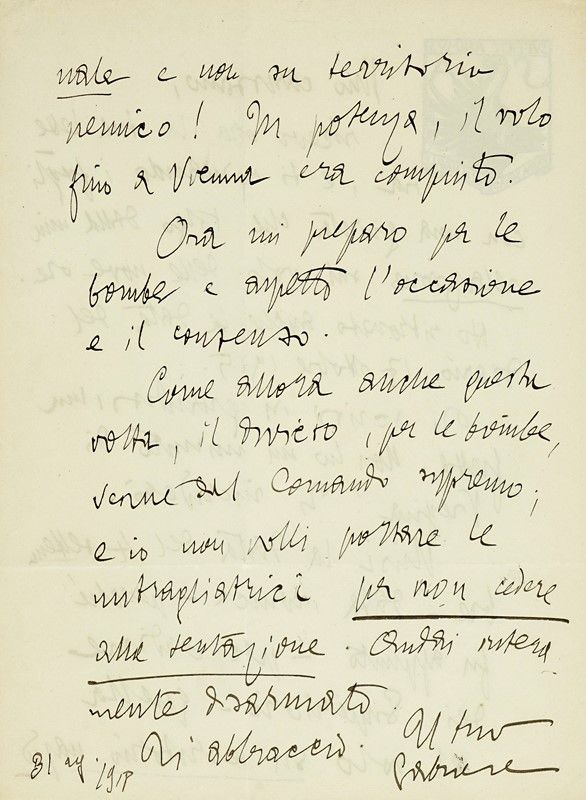 nale e non su territorio
nemico! In potenza, il volo
fino a Vienna era compiuto.
Ora mi preparo per le
bombe e aspetto l'occasione
e il consenso.
Come allora anche questa
volta, il divieto, per le bombe,
venne dal Comando supremo;
e io non volli portare le
mitragliatrici per non cedere
alla tentazione. Andai intera
mente disarmato.
Ti abbraccio. Il tuo
31 ag. /918 Gabriele